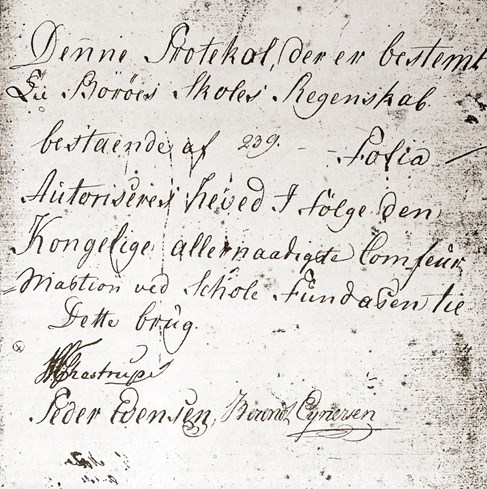 Denne Protokal, der er bestemt
Til Böröes Skoles Regenskab
bestaende af 239. - - Folia
Autoriseres heved I fölge den
Kongelige allernaadigste Comfeur
=mastion ved Schole Fundasen tie
Dette brug.
Peder Edensen,